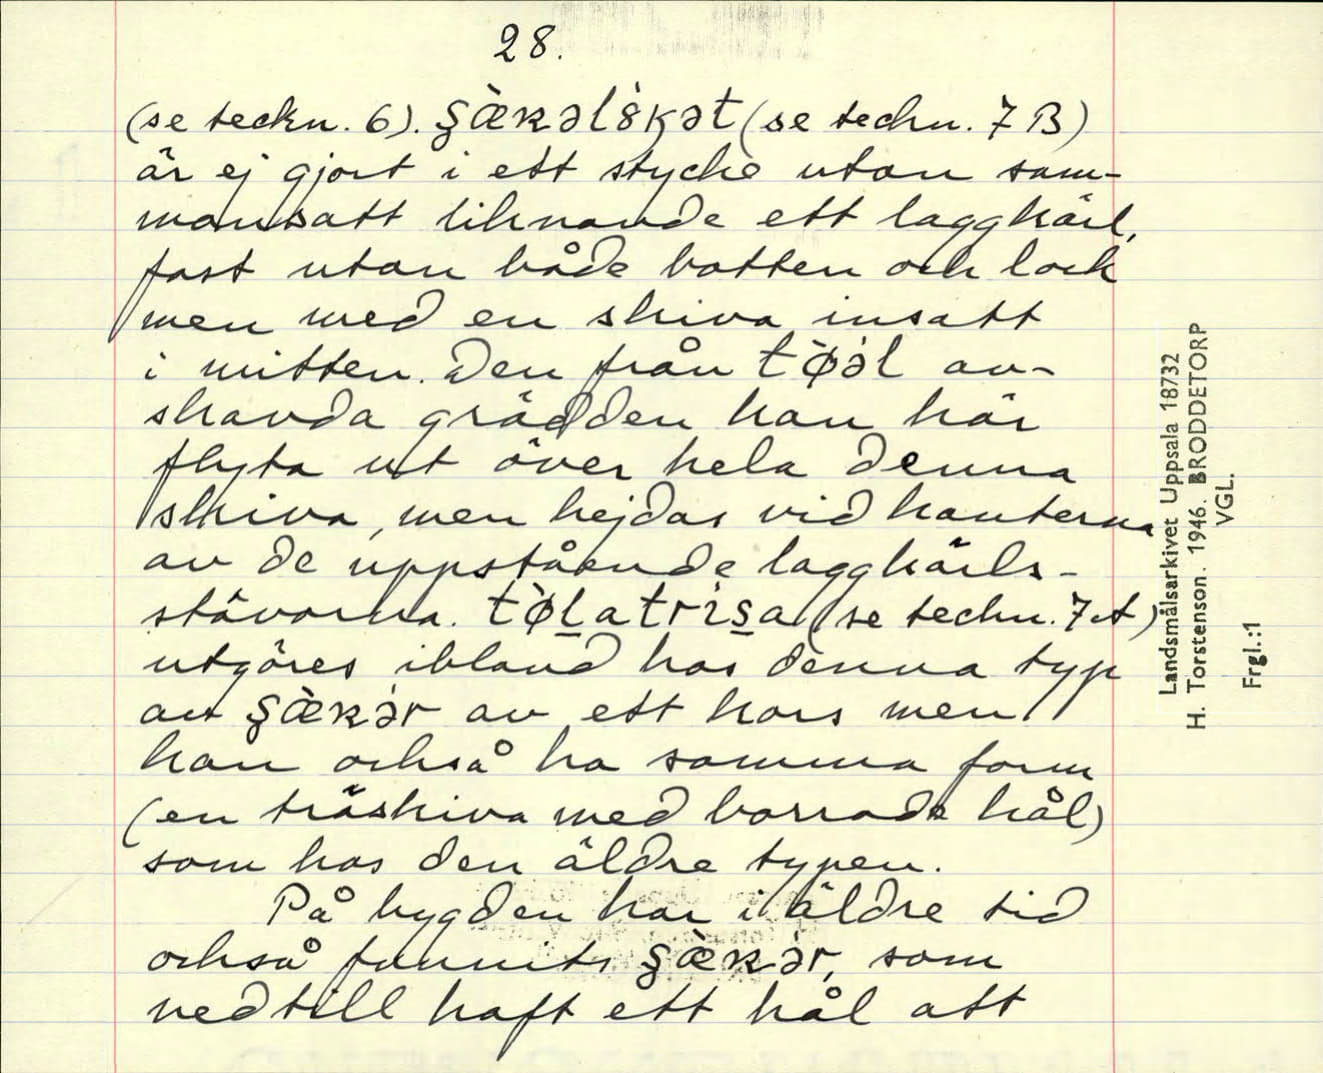 28.
(se teckn. 6). şæ̀kəlškət (se teckn. 7 B)
är ej gjort i ett stycke utan sam-
mansatt liknande ett laggkärl,
fast utan både botten och lock
men med en skiva insatt
i mitten. Den från tø̀əl av-
skavda grädden kan här
flyta ut över hela denna
skiva, men hejdas vid kanterna
av de uppstående laggkärls-
stävorna. tø̀latrìsa (se teckn. 7 A)
utgöres ibland hos denna typ
av şæ̀kər av ett kors men
kan också ha samma form
(en träskiva med borrade hål)
som hos den äldre typen.
På bygden har i äldre tid
också funnits şæ̀kər, som
nedtill haft ett hål att
Landsmålsarkivet Uppsala 18732
H. Torstenson. 1946. BRODDETORP
VGL.
Frgl.:1